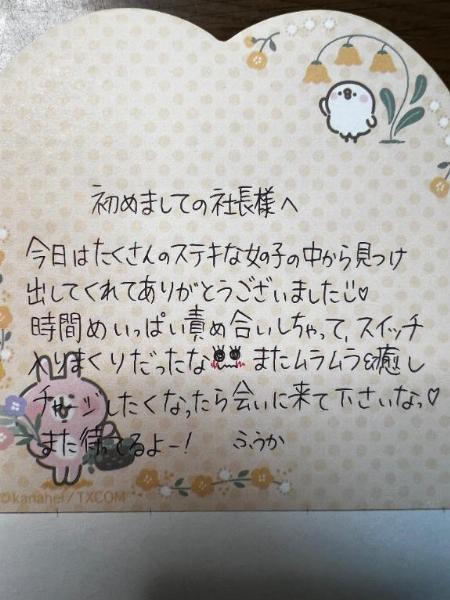 初めましての社長様へ
今日はたくさんのステキな女の子の中から見つけ
出してくれてありがとうございました♡
時間めいっぱい責め合いしちゃって、スイッチ
入りまくりだったなまたムラムラ&癒し
チャージしたくなったら会いに来て下さいなっ♡
また待ってるよー! ふうか
©kanahei/TXCOM